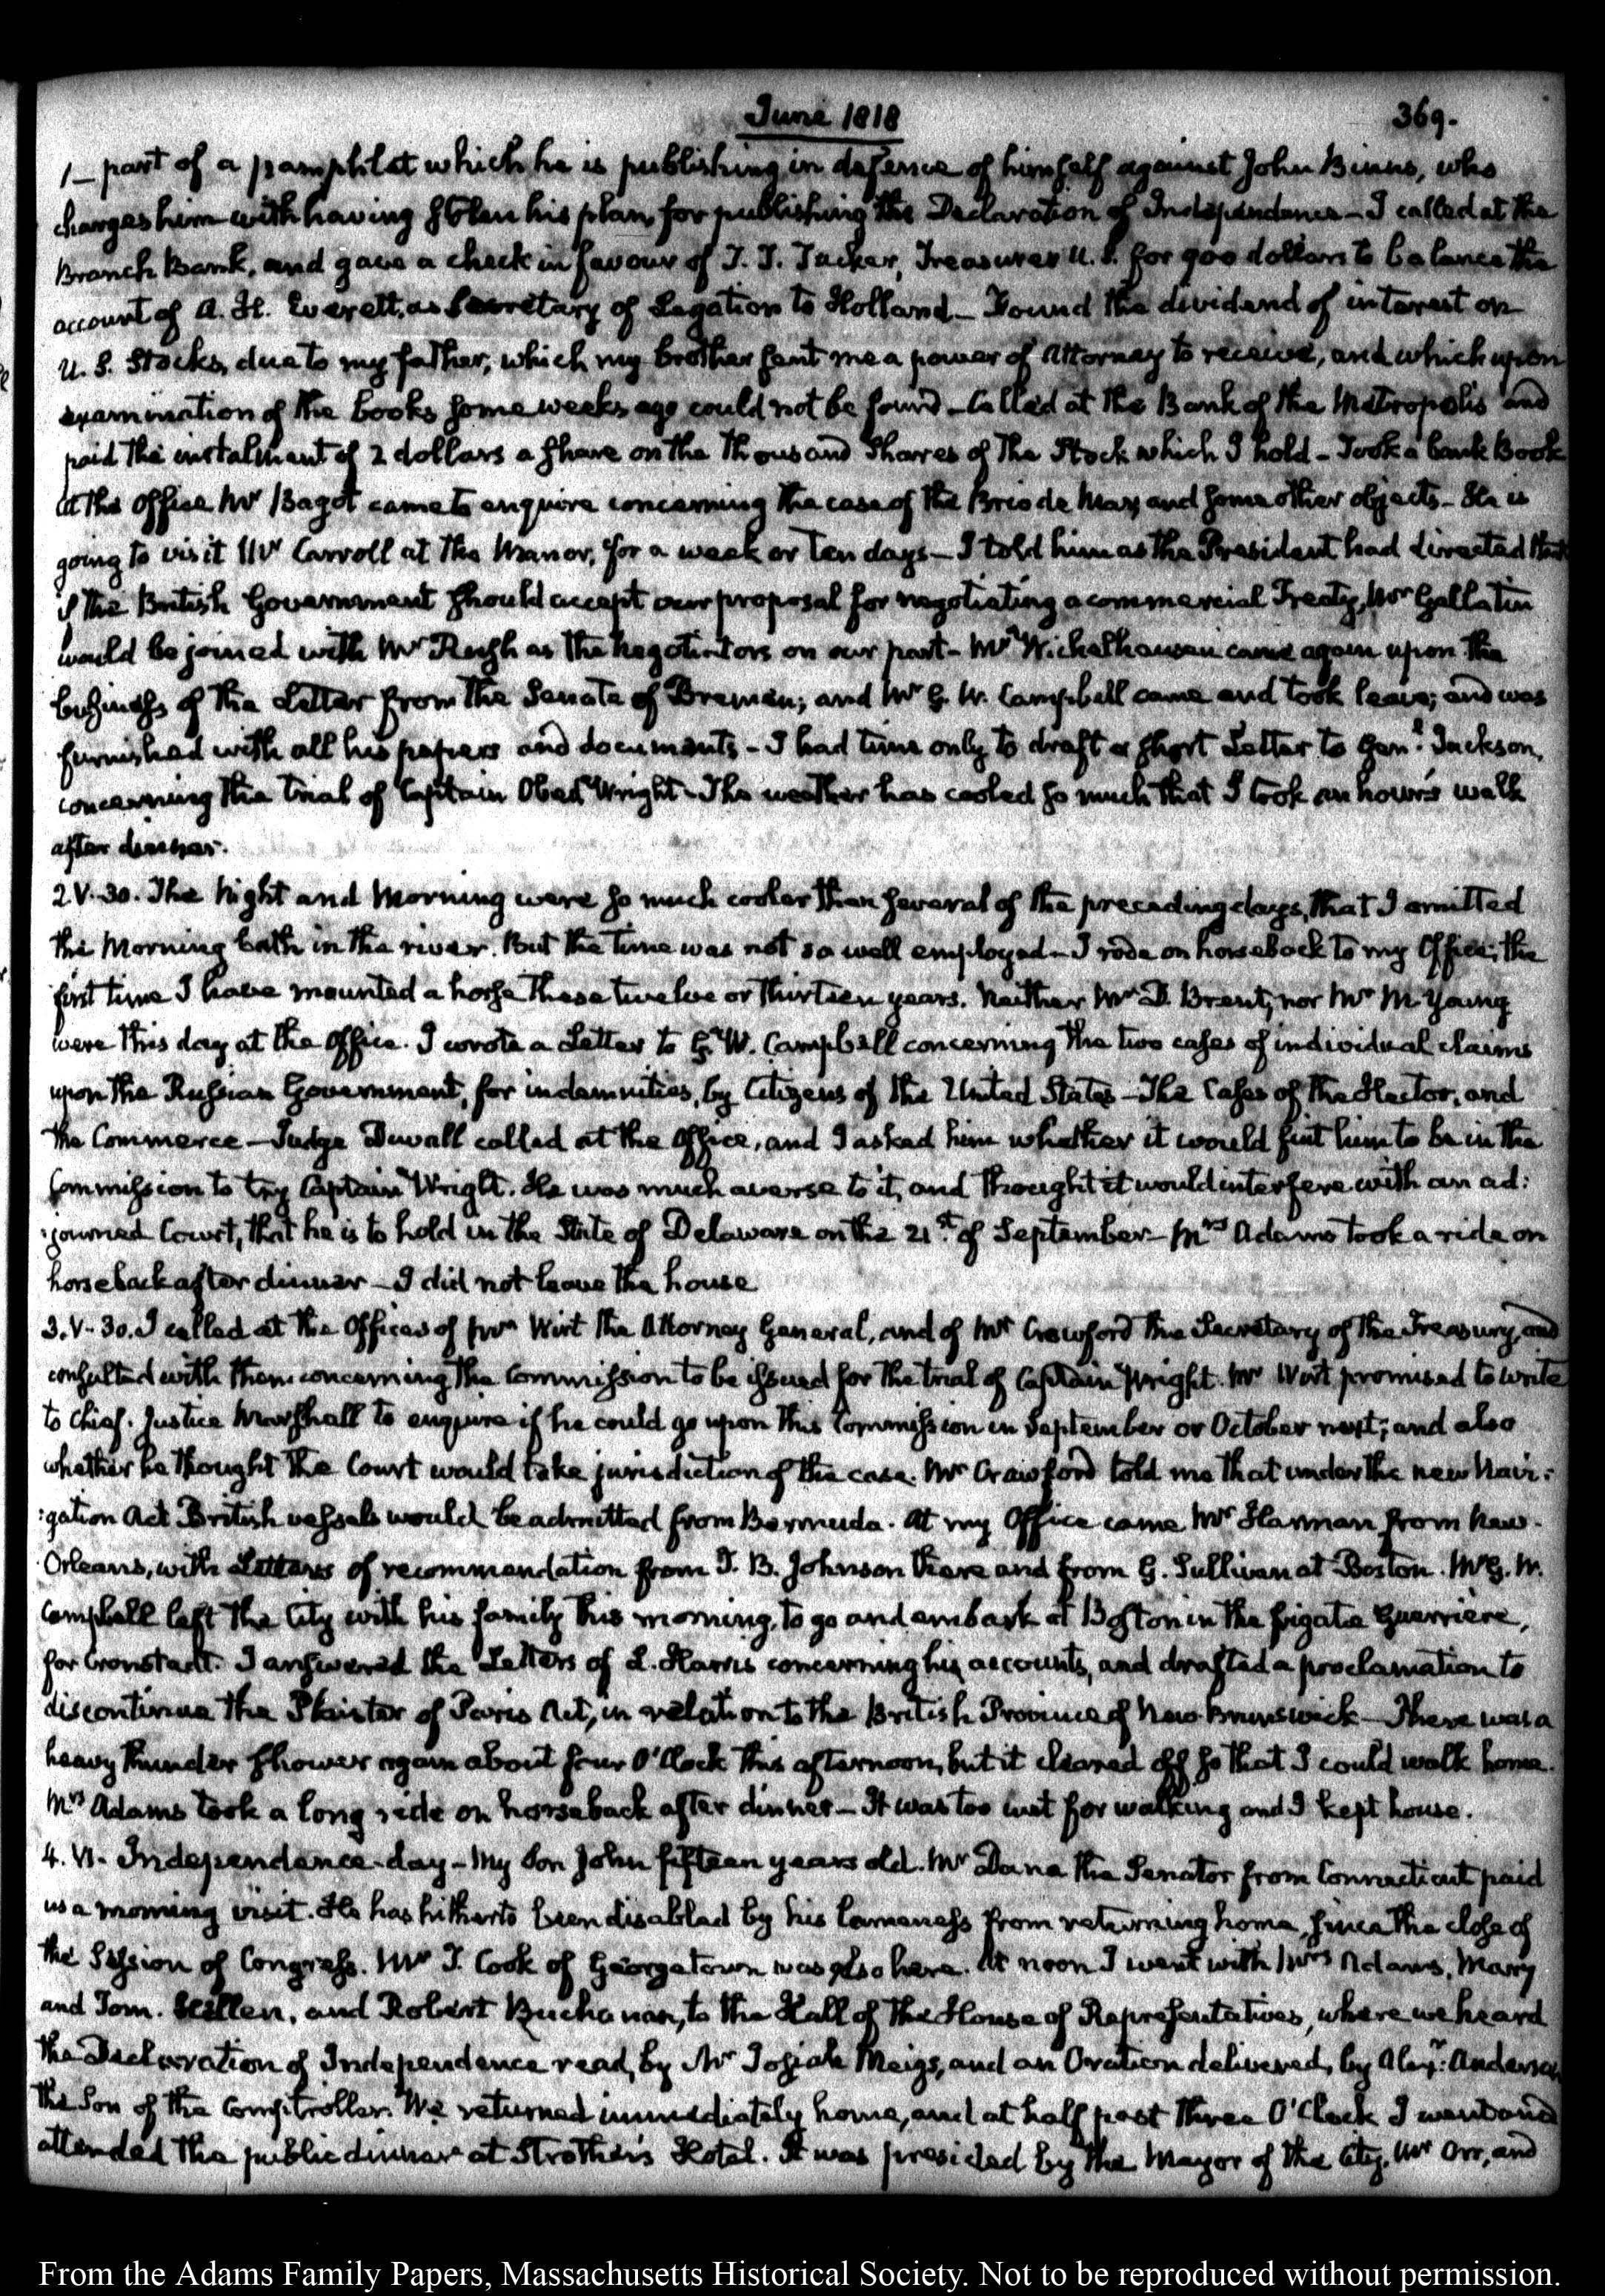 June 1818
369.
1— part of a pamphlet which he is publishing in defence of himself against John Binns, who
charges him with having stolen his plan, for publishing the Declaration of Independence — I called at the
Branch Bank, and gave a check in favour of T. T. Tucker, Treasurer U. S. for 900 dollars to balance the
account of A. H. Everett, as Secretary of Legation to Holland — Found the dividend of interest on
U. S. Stocks, due to my father, which my brother sent me a power of Attorney to receive, and which upon
examination of the books some weeks ago could not be found — Called at the Bank of the Metropolis and
paid the instalment of 2 dollars a share on the thousand Shares of the Stock which I hold — Took a bank Book
At the Office Mr Bagot came to enquire concerning the case of the Brio de Mar, and some other objects — He is
going to visit Mr Carroll at the Manor, for a week or ten days — I told him as the President had directed that
if the British Government should accept our proposal for negotiating a commercial Treaty, Mr Gallatin
would be joined with Mr Rush as the negotiators on our part — Mr Wichelhausen came again upon the
business of the Letter from the Senate of Bremen; and Mr G. W. Campbell came and took leave; and was
furnished with all his papers and documents — I had time only to draft a short Letter to Genl. Jackson,
concerning the trial of Captain Obed Wright — The weather has cooled so much that I took an hour's walk
after dinner.
2. V-30. The Night and Morning were so much cooler than several of the preceding days, that I omitted
the Morning bath in the river. But the time was not so well employed — I rode on horseback to my Office; the
first time I have mounted a horse these twelve or thirteen years. Neither Mr D. Brent, nor Mr M. Young
were this day at the Office. I wrote a Letter to G. W. Campbell concerning the two cases of individual claims
upon the Russian Government, for indemnities, by Citizens of the United States — The Cases of the Hector, and
the Commerce — Judge Duvall called at the Office, and I asked him whether it would suit him to be in the
Commission to try Captain Wright. He was much averse to it, and thought it would interfere with an ad:
:journed Court, that he is to hold in the State of Delaware on the 21st. of September — Mrs Adams took a ride on
horseback after dinner — I did not leave the house
3. V-30. I called at the Offices of Mr Wirt the Attorney General, and of Mr Crawford the Secretary of the Treasury, and
consulted with them concerning the Commission to be issued for the trial of Captain Wright. Mr Wirt promised to write
to Chief. Justice Marshall to enquire if he could go upon this Commission in September or October next; and also
whether he thought the Court would take jurisdiction of the case. Mr Crawford told me that under the new Navi:
:gation Act British vessels would be admitted from Bermuda. At my Office came Mr Harman from New-
Orleans, with Letters of recommendation from J. B. Johnson there and from G. Sullivan at Boston. Mr G. W.
Campbell left the City with his family this morning, to go and embark at Boston in the frigate Guerriere,
for Cronstadt. I answered the Letters of L. Harris concerning his accounts, and drafted a proclamation to
discontinue the Plaister of Paris Act, in relation to the British Province of New-Brunswick — There was a
heavy thunder shower again about four O'Clock this afternoon, but it cleared off so that I could walk home.
Mrs Adams took a long ride on horseback after dinner — It was too wet for walking and I kept house.
4. VI- Independence-day — My Son John fifteen years old. Mr Dana the Senator from Connecticut paid
us a morning visit. He has hitherto been disabled by his lameness from returning home, since the close of
the Session of Congress. Mr T. Cook of Georgetown was also here. At noon I went with Mrs Adams, Mary
and Tom. Hellen, and Robert Buchanan, to the Hall of the House of Representatives, where we heard
the Declaration of Independence read, by Mr Josiah Meigs, and an Oration delivered, by Alexr. Anderson
the Son of the Comptroller. We returned immediately home, and at half past three O'Clock I went and
attended the public dinner at Strother's Hotel. It was presided by the Mayor of the City, Mr Orr, and
From the Adams Family Papers, Massachusetts Historical Society. Not to be reproduced without permission.